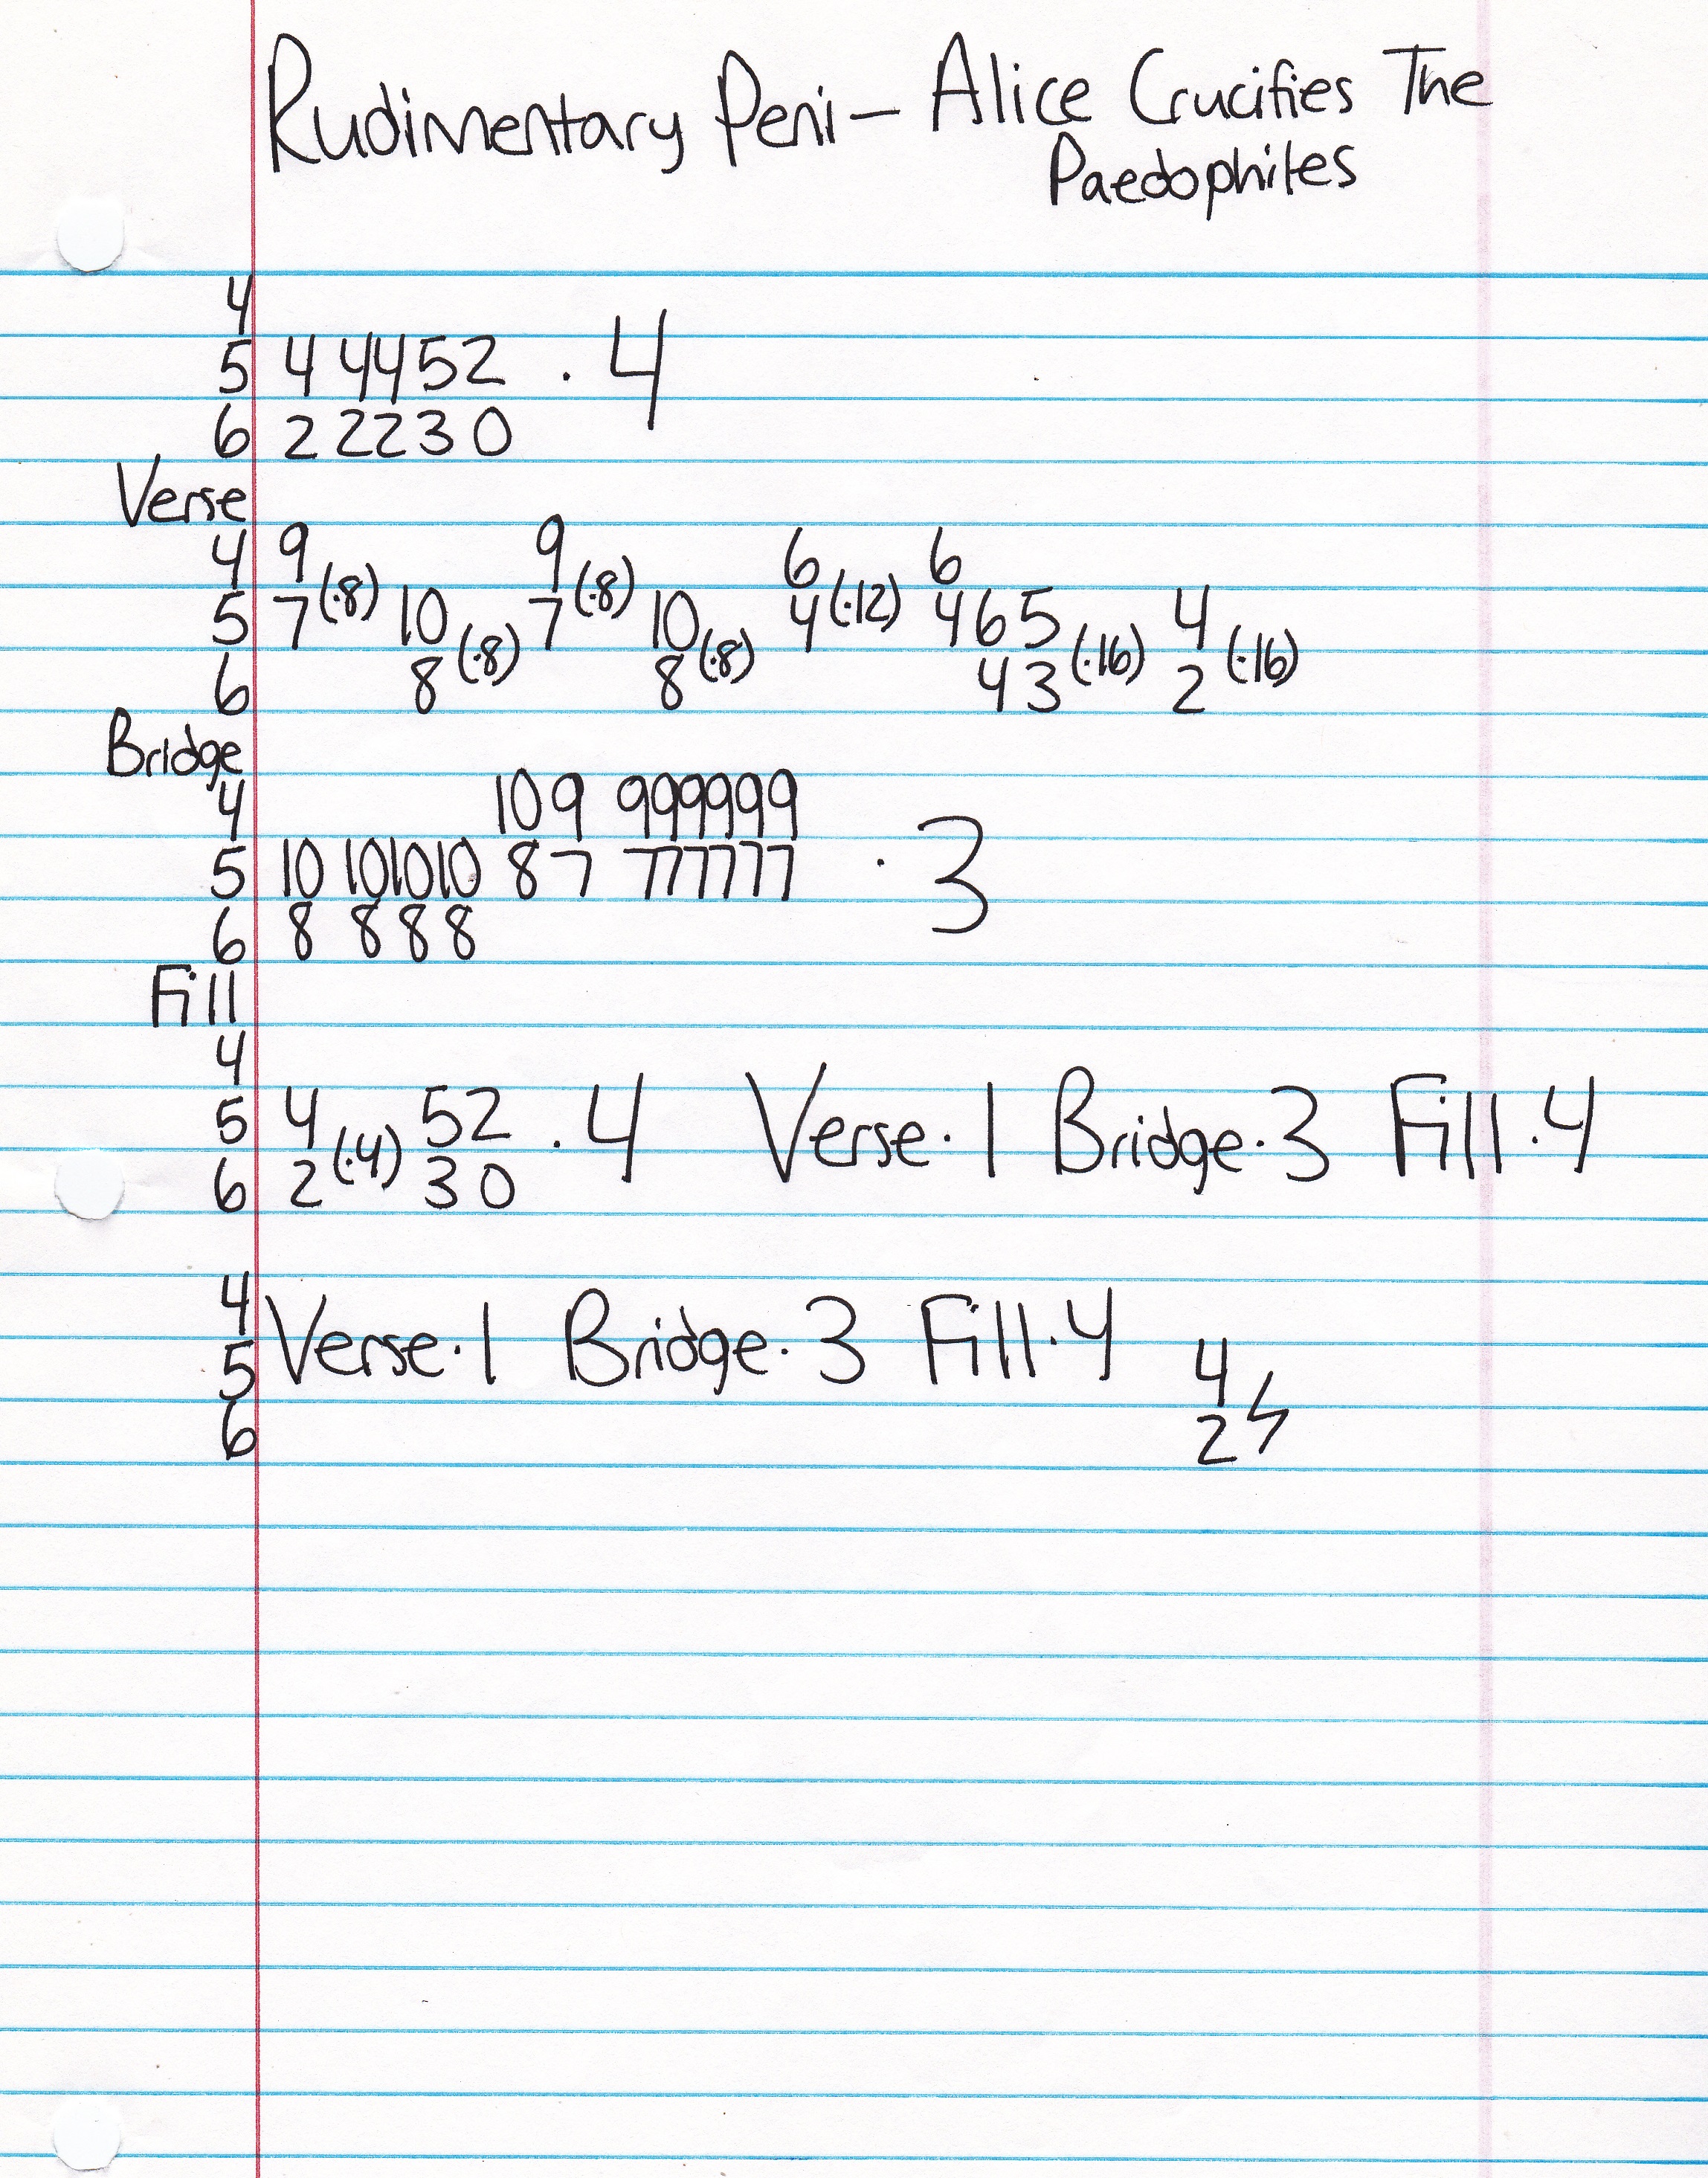 Rudimentary Peni - Alice Crucifies The
Paedophiles
4
5 4 4452 · 4
6 2 2230
Verse
4 9 9 6 6
5 7 (·8) 10 7 (·8) 10 4 (·12) 4 6 5 4
6 8 (·8) 8 (·8) 4 3 (·16) 2 (·16)
Bridge
4 10 9 999999
5 10 101010 8 7 777777 · 3
6 8 8 8 8
Fill
4
5 4 52 · 4 Verse · 1 Bridge · 3 Fill · 4
6 2 (·4) 30
4
5 Verse · 1 Bridge · 3 Fill · 4 4
6 2